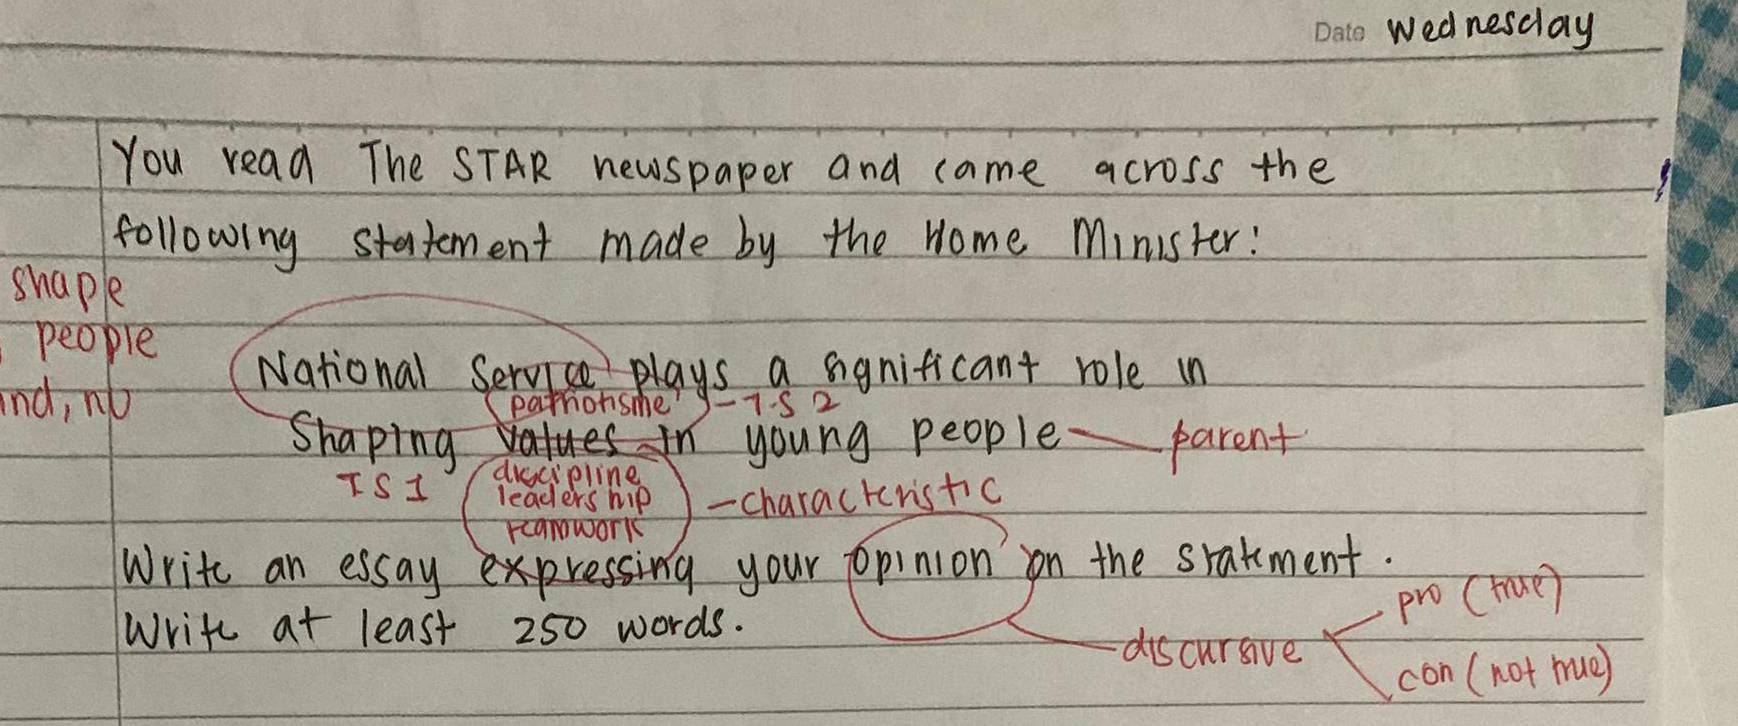 Date Wednesday
You read The STAR newspaper and came across the
following statement made by the Home Minister:
shape
people
ind, no
National Service plays a significant role in
patriotisme - T.S 2
Shaping values in young people - parent
TS1
discipline
leadership - characteristic
teamwork
Write an essay expressing your opinion on the statement.
Write at least 250 words.
discursive
pro (true)
con (not true)